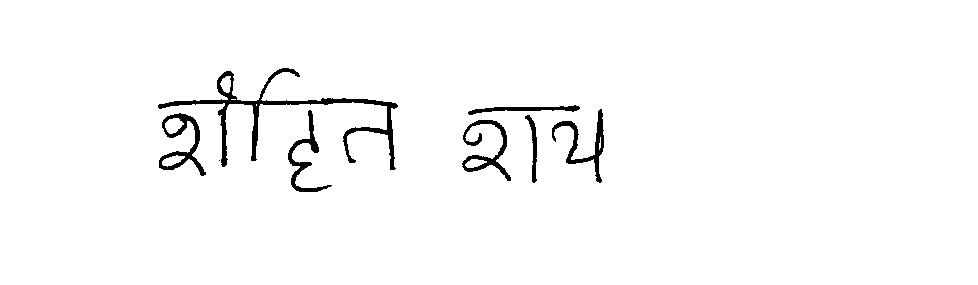 शोहित राय